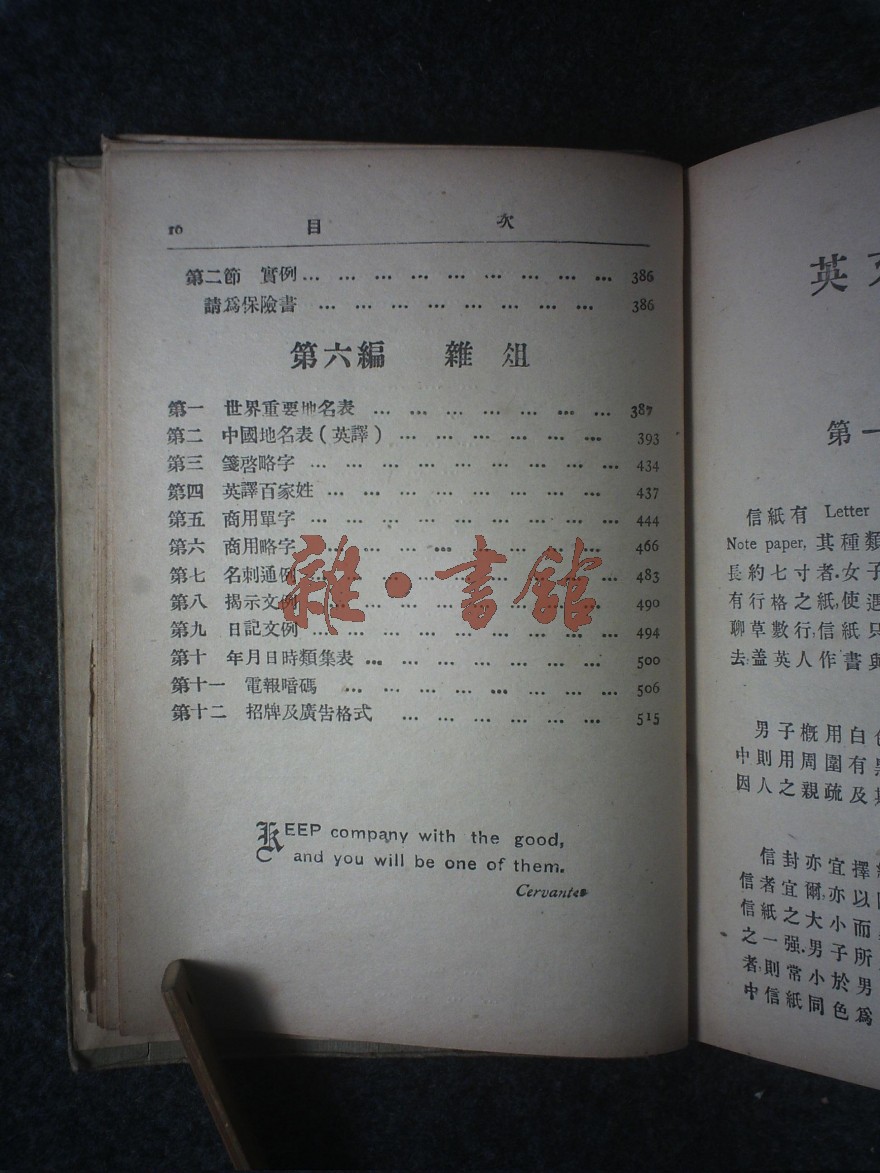 10 目 次
第二節 實例 ... ... ... ... ... ... ... ... ... 386
請爲保險書 ... ... ... ... ... ... ... ... 386
第六編 雜俎
第一 世界重要地名表 ... ... ... ... ... ... ... 387
第二 中國地名表(英譯) ... ... ... ... ... ... 393
第三 箋啓略字 ... ... ... ... ... ... ... ... ... 434
第四 英譯百家姓 ... ... ... ... ... ... ... ... 437
第五 商用單字 ... ... ... ... ... ... ... ... ... 444
第六 商用略字 ... ... ... ... ... ... ... ... ... 466
第七 名刺通例 ... ... ... ... ... ... ... ... ... 483
第八 揭示文例 ... ... ... ... ... ... ... ... ... 490
第九 日記文例 ... ... ... ... ... ... ... ... ... 494
第十 年月日時類集表 ... ... ... ... ... ... ... 500
第十一 電報暗碼 ... ... ... ... ... ... ... ... 506
第十二 招牌及廣告格式 ... ... ... ... ... ... 515
雜·書館
KEEP company with the good,
and you will be one of them.
Cervantes
英
第一
信紙有 Letter
Note paper, 其種類
長約七寸者.女子
有行格之紙,使遇
聊草數行,信紙只
去,蓋英人作書與
男子概用白色
中則用周圍有黑
因人之親疏及
信封亦宜擇
信者宜爾,亦以
信紙之大小而
之一强.男子所
者,則常小於男
中信紙同色爲